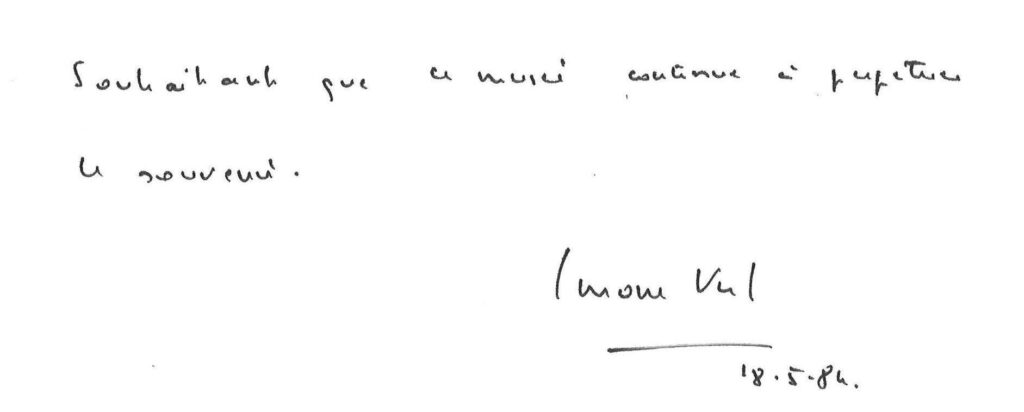 Souhaitant que ce musée continue à perpétuer
le souvenir.
Simone Veil
18.5.84.